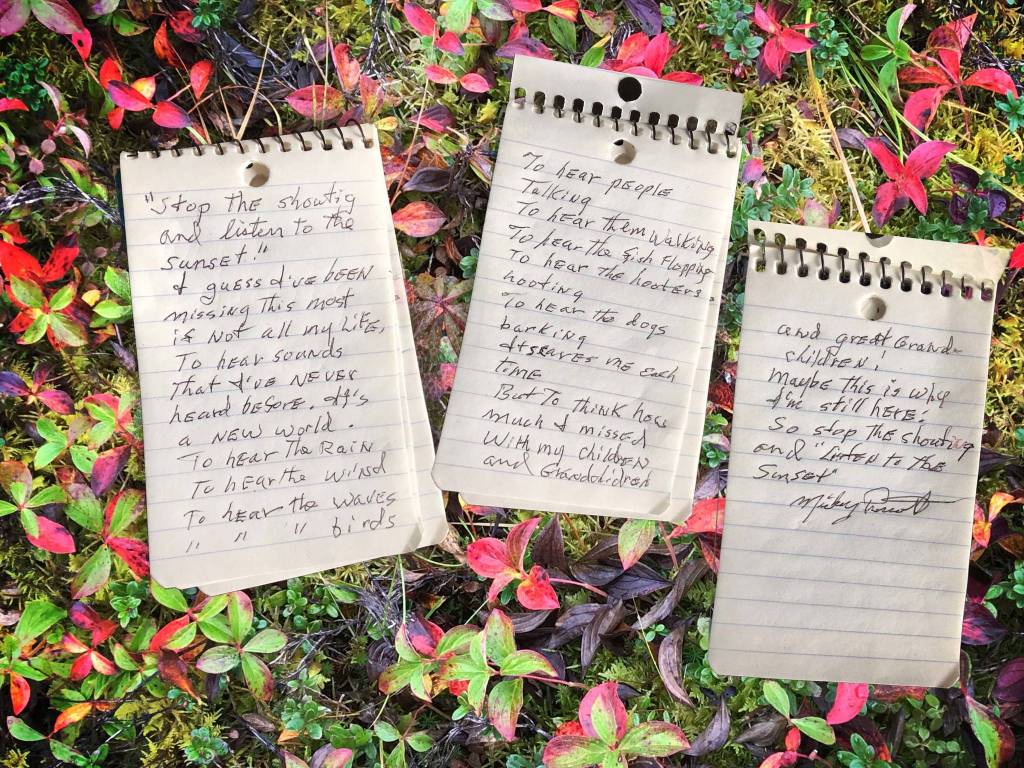 "Stop THE showtig
and listen to the
Sunset."
I guess I'VE BEEN
missing This most
if Not all my LifE,
To hEAR sounds
That I'VE NEVER
heard before. It's
a NEW world.
To hear The RaiN
To hear the wind
To hear the waves
" " " birds
To hEar people
Talking
To hEar Them Walking
To hear The fish Flopping
To hear the hooters
hooting
To hear The dogs
barking
It scares me Each
TimE
But To Think how
Much I missed
With my childrEN
and Grandchildren
and great Grand-
children!
Maybe This is why
I'm still HERE!
So stop The shouting
and "Listen to The
Sunset"
Mickey